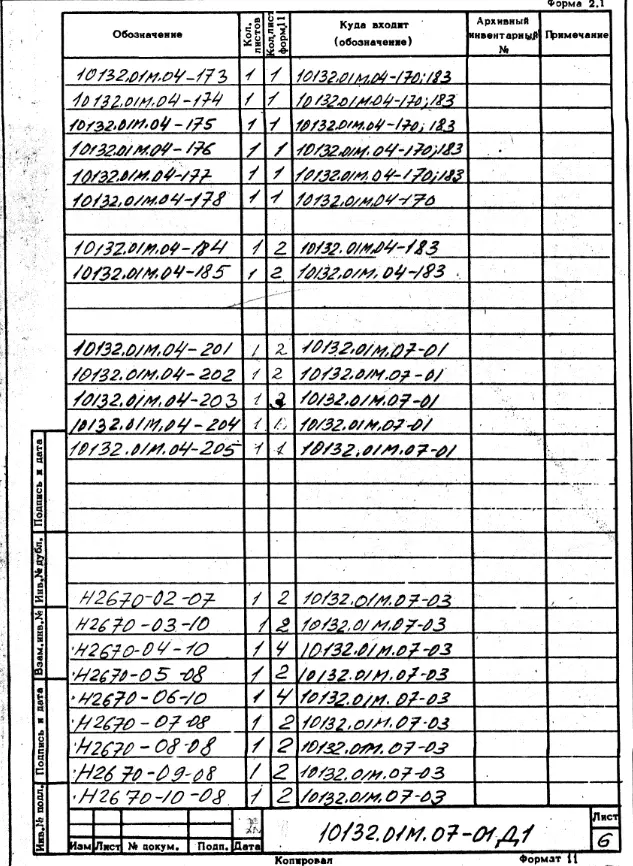 Форма 2.1
Обозначение Кол. листов Кол.лист форм.11 Куда входит (обозначение) Архивный инвентарный № Примечание
10132.01М.04-173 1 1 10132.01М.04-170;183
10132.01М.04-174 1 1 10132.01М.04-170;183
10132.01М.04-175 1 1 10132.01М.04-170; 183
10132.01М.04-176 1 1 10132.01М.04-170;183
10132.01М.04-177 1 1 10132.01М.04-170;183
10132.01М.04-178 1 1 10132.01М.04-170
10132.01М.04-184 1 2 10132.01М.04-183
10132.01М.04-185 1 2 10132.01М.04-183
10132.01М.04-201 1 2 10132.01М.07-01
10132.01М.04-202 1 2 10132.01М.07-01
10132.01М.04-203 1 10132.01М.07-01
10132.01М.04-204 1 10132.01М.07-01
10132.01М.04-205 1 1 10132.01М.07-01
Н2670-02-07 1 2 10132.01М.07-03
Н2670-03-10 1 2 10132.01М.07-03
Н2670-04-10 1 4 10132.01М.07-03
Н2670-05-08 1 2 10132.01М.07-03
Н2670-06-10 1 4 10132.01М.07-03
Н2670-07-08 1 2 10132.01М.07-03
Н2670-08-08 1 2 10132.01М.07-03
Н2670-09-08 1 2 10132.01М.07-03
Н2670-10-08 1 2 10132.01М.07-03
Подпись и дата
Инв.№ дубл.
Взам.инв.№
Подпись и дата
Инв.№ подл.
Изм Лист № докум. Подп. Дата
10132.01М.07-01Д1
Лист
6
Копировал Формат 11